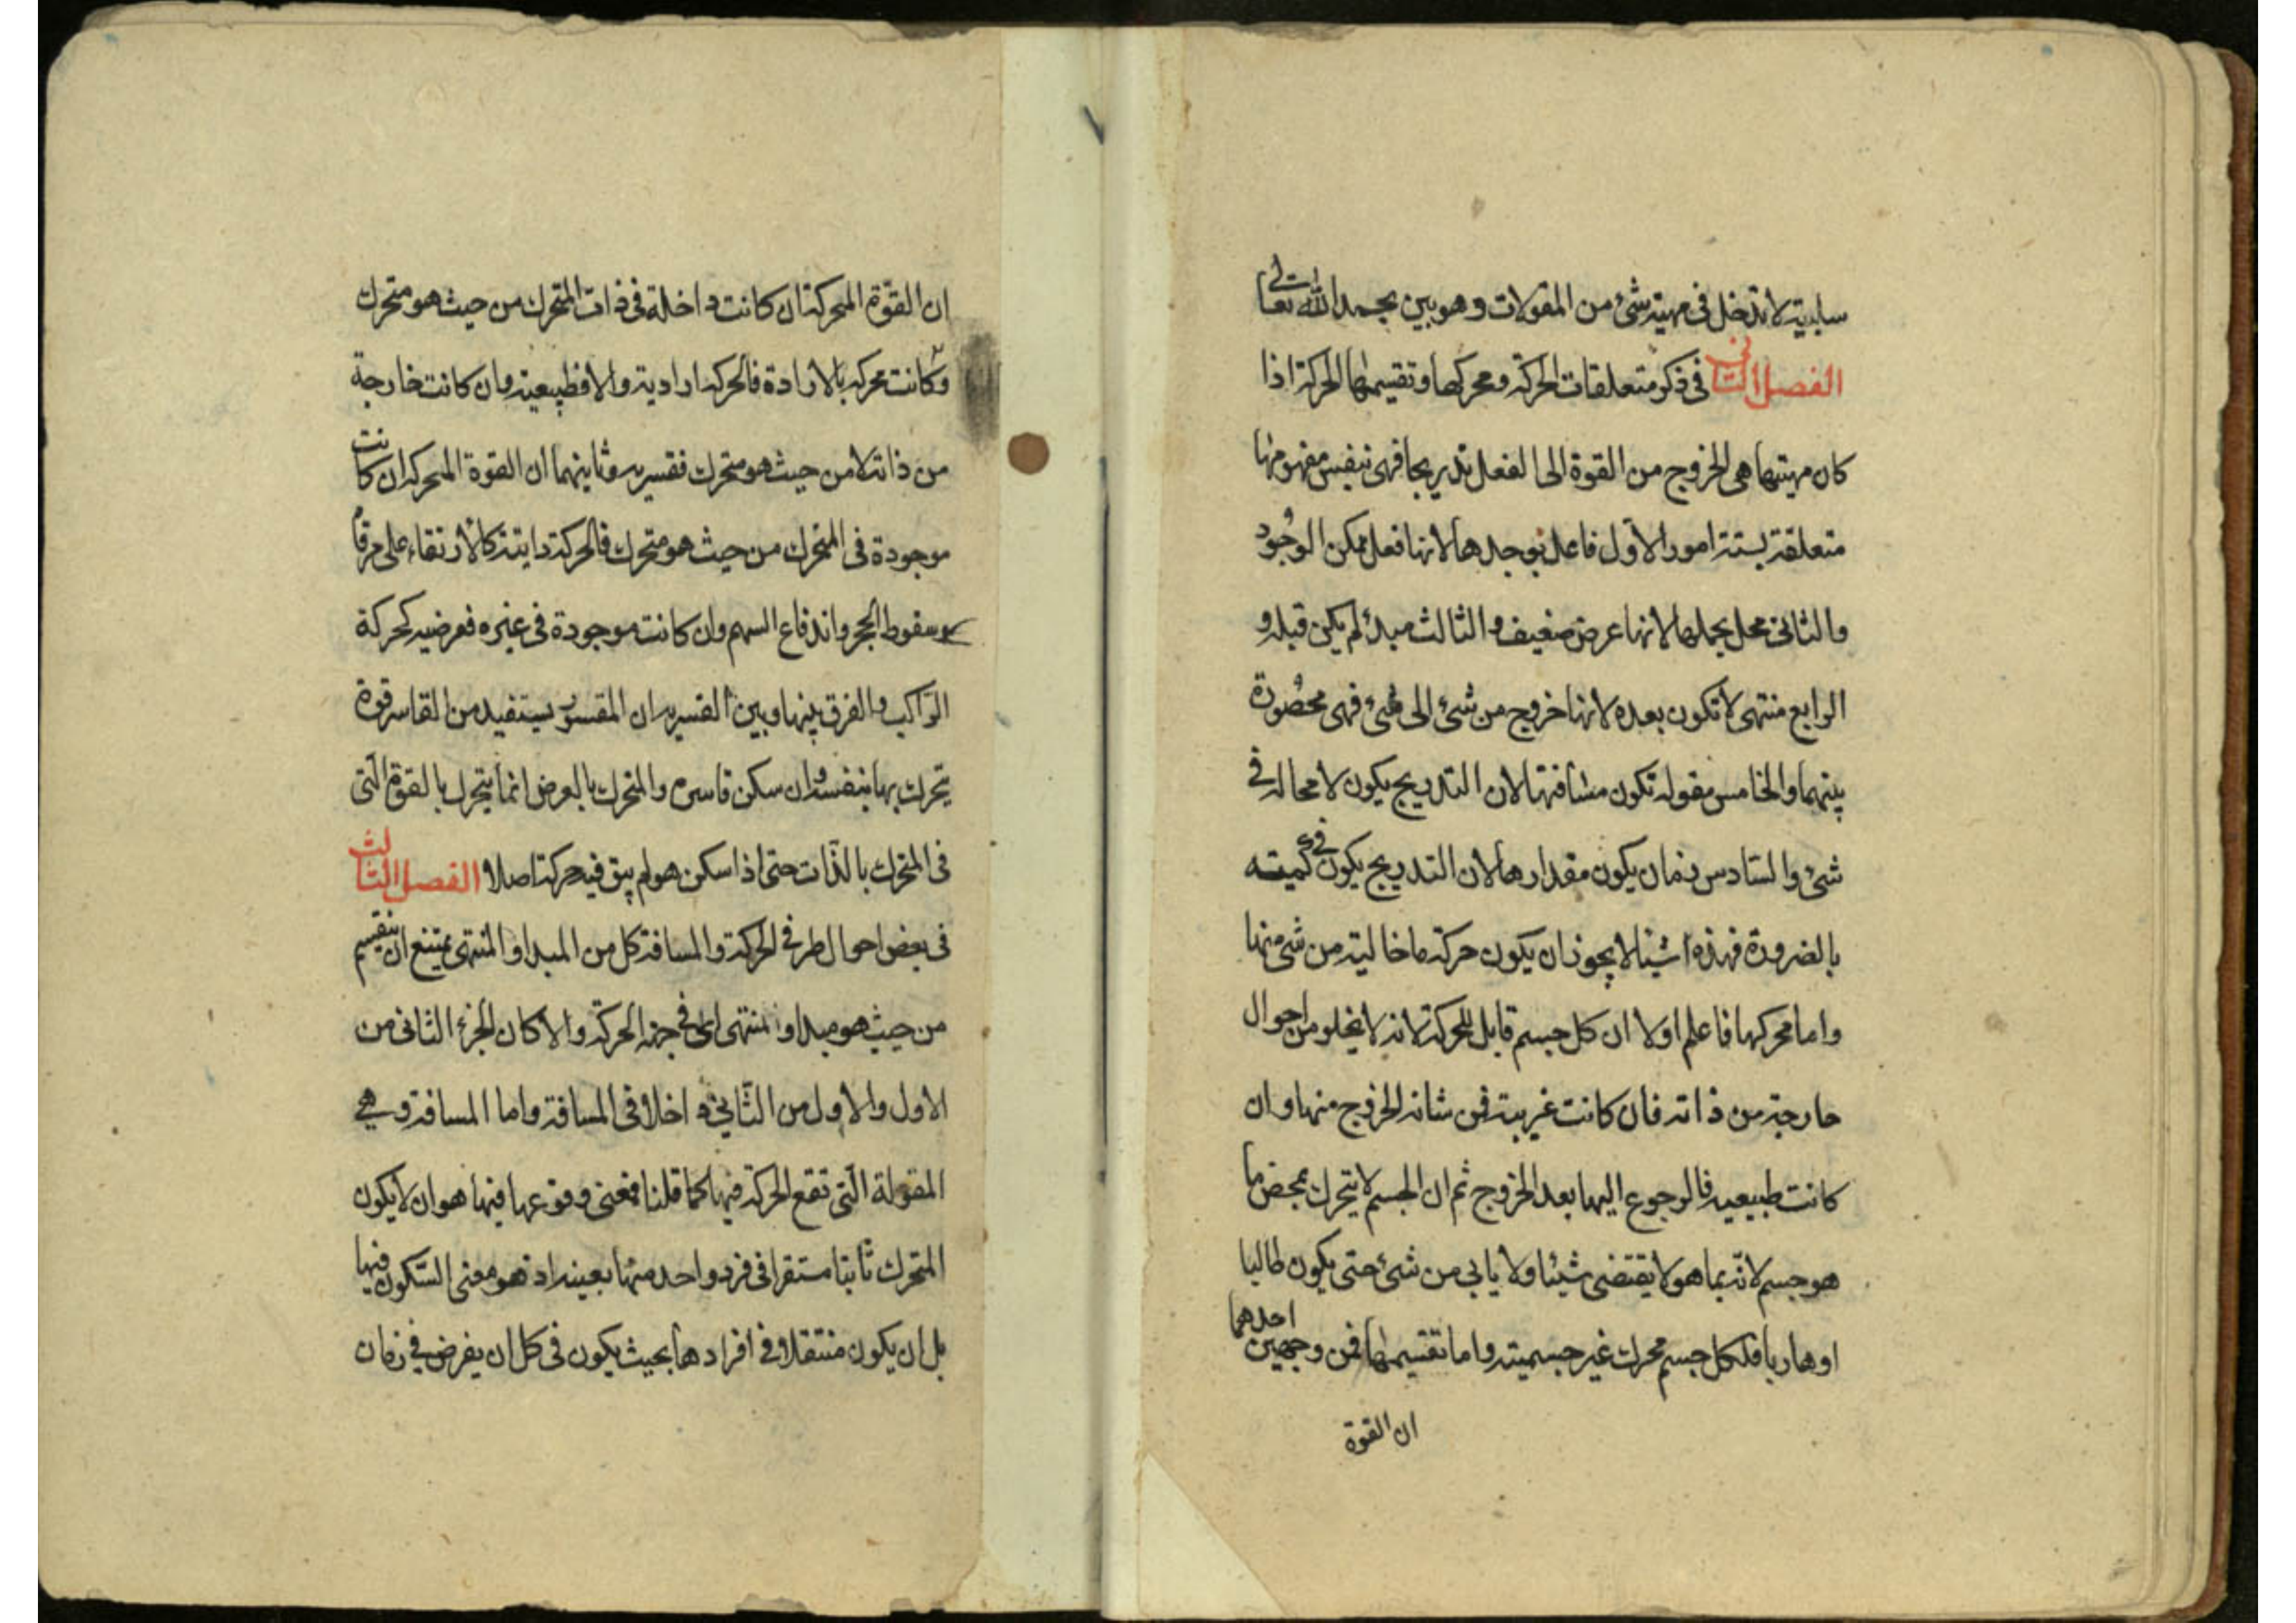 سلبية لا تدخل فى مهية شئ من المقولات وهو بين بحمد الله تعالى
الفصل الثانى فى ذكر متعلقات الحركة ومحركها وتقسيمها الحركة اذا
كان مهيتها هى الخروج من القوة الى الفعل تدريجا فهى بنفس مفهومها
متعلقة بستة امور الاول فاعل يوجدها لانها فعل ممكن الوجود
والثانى محل يحملها لانها عرض ضعيف والثالث مبدئ لم يكن قبله و
الرابع منتهى لا تكون بعده لانها خروج من شئ الى شئ فهى محصورة
بينهما والخامس مقولة تكون مسافتها لان التدريج يكون لا محالة فى
شئ والسادس زمان يكون مقدارها لان التدريج يكون فى كميته
بالضرورة فهذه اشيا لا يجوز ان يكون حركة ما خالية من شئ منها
واما محركها فاعلم اولا ان كل جسم قابل للحركة لانه لا يخلو من احوال
خارجة من ذاته فان كانت غريبة فمن شانه الخروج منها وان
كانت طبيعية فالرجوع اليها بعد الخروج ثم ان الجسم لا يتحرك بمحض ما
هو جسم لانه بما هو لا يقتضى شيئا ولا يابى من شئ حتى يكون طالبا
او هاربا فلكل جسم محرك غير جسميته واما تقسيمها فمن وجهين احدهما
ان القوة
ان القوة المحركة ان كانت داخلة فى ذات المتحرك من حيث هو متحرك
وكانت محركة بالارادة فالحركة ارادية والا فطبيعية وان كانت خارجة
من ذاته لا من حيث هو متحرك فقسرية وثانيهما ان القوة المحركة ان كانت
موجودة فى المتحرك من حيث هو متحرك فالحركة ذاتية كالارتقاء على مرقاة
وسقوط الحجر واندفاع السهم وان كانت موجودة فى غيره فعرضية كحركة
الراكب والفرق بينها وبين القسرية ان المقسور يستفيد من القاسر قوة
يتحرك بها بنفسه وان سكن قاسره والمتحرك بالعرض انما يتحرك بالقوة التى
فى المتحرك بالذات حتى اذا سكن هو لم يبق فيه حركة اصلا الفصل الثالث
فى بعض احوال طرفى الحركة والمسافة كل من المبدا والمنتهى يمتنع ان ينقسم
من حيث هو مبدا او منتهى اى فى جهة الحركة والا كان الجزء الثانى من
الاول والاول من الثانى داخلا فى المسافة واما المسافة وهى
المقولة التى تقع الحركة فيها كما قلنا فمعنى وقوعها فيها هو ان لا يكون
المتحرك ثابتا مستقرا فى فرد واحد منها بعينه اذ هو معنى السكون فيها
بل ان يكون منتقلا فى افرادها بحيث يكون فى كل ان يفرض فى زمان